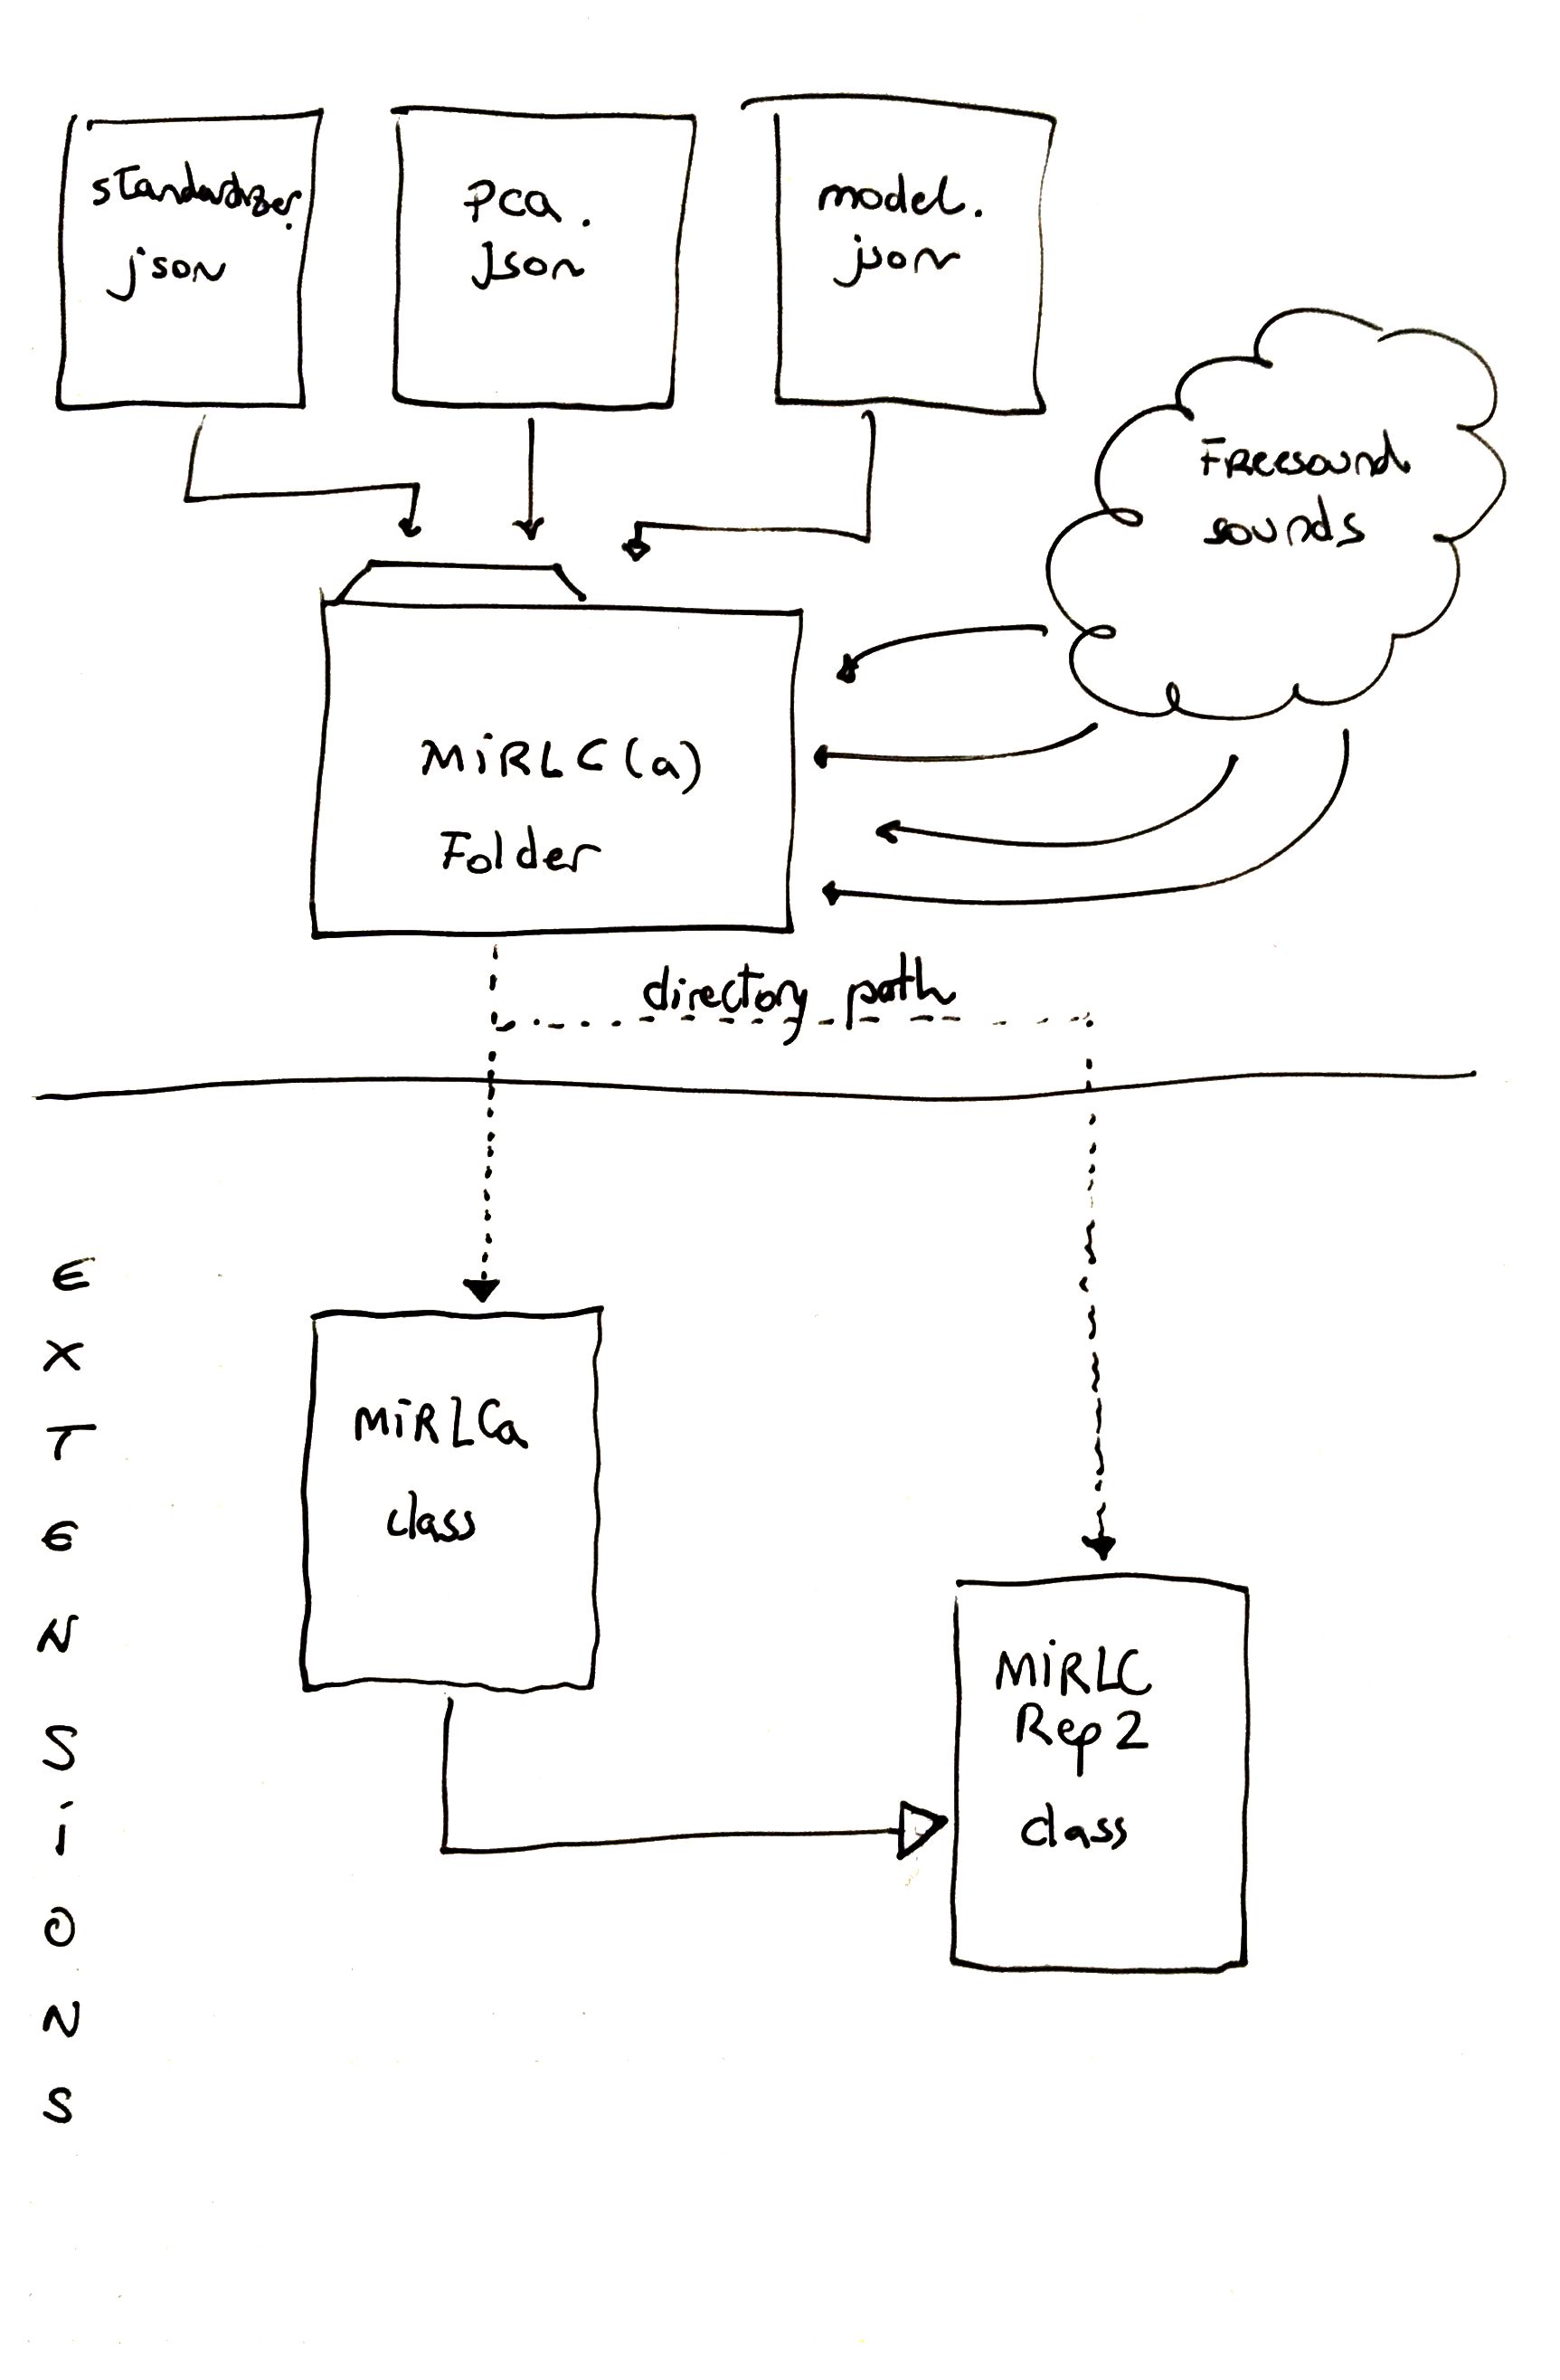 standardizer.
json
pca.
json
model.
json
Freesound
sounds
MiRLC(a)
Folder
directory path
EXTENSiONS
MiRLCa
class
MiRLC
Rep2
class